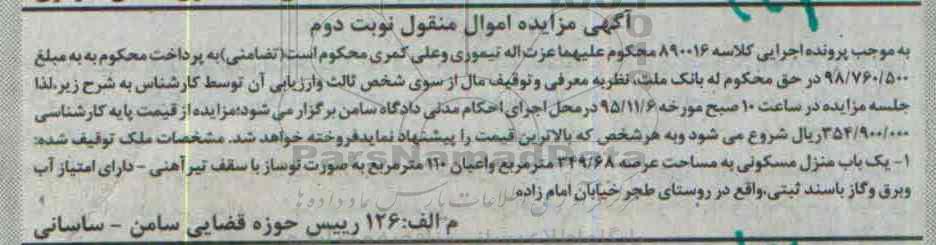 آگهی مزایده اموال منقول نوبت دوم
به موجب پرونده اجرایی کلاسه ۸۹۰۰۱۶ محکوم علیهما عزت اله تیموری وعلی کمری محکوم است(تضامنی)به پرداخت محکوم به به مبلغ
۹۸/۷۶۰/۵۰۰ در حق محکوم له بانک ملت، نظربه معرفی وتوقیف مال از سوی شخص ثالث وارزیابی آن توسط کارشناس به شرح زیر،لذا
جلسه مزایده در ساعت ۱۰ صبح مورخه ۹۵/۱۱/۶ درمحل اجرای احکام مدنی دادگاه سامن برگزار می شود؛مزایده از قیمت پایه کارشناسی
۳۵۴/۹۰۰/۰۰۰ریال شروع می شود وبه هرشخص که بالاترین قیمت را پیشنهاد نمایدفروخته خواهد شد. مشخصات ملک توقیف شده:
۱- یک باب منزل مسکونی به مساحت عرصه ۳۴۹/۶۸ مترمربع واعیان ۱۱۰ مترمربع به صورت نوساز با سقف تیرآهنی -دارای امتیاز آب
وبرق وگاز باسند ثبتی،واقع در روستای طجر خیابان امام زاده.
م الف:۱۲۶ رییس حوزه قضایی سامن - ساسانی
ParsNamadData